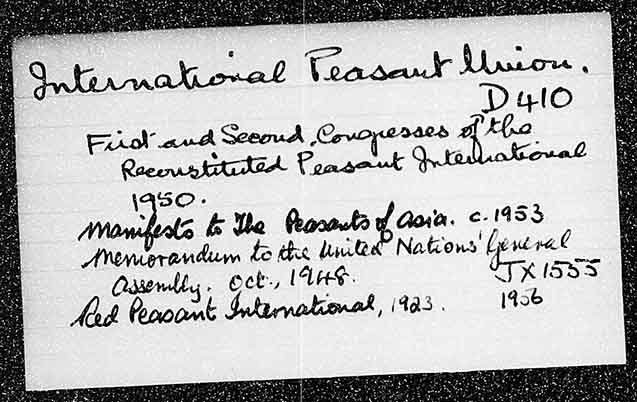 International Peasant Union.
D 410
First and Second Congresses of the
Reconstituted Peasant International
1950.
Manifesto to The Peasants of Asia. c. 1953
Memorandum to the United Nations' General
Assembly. Oct., 1948. JX 1555
Red Peasant International, 1923. 1956